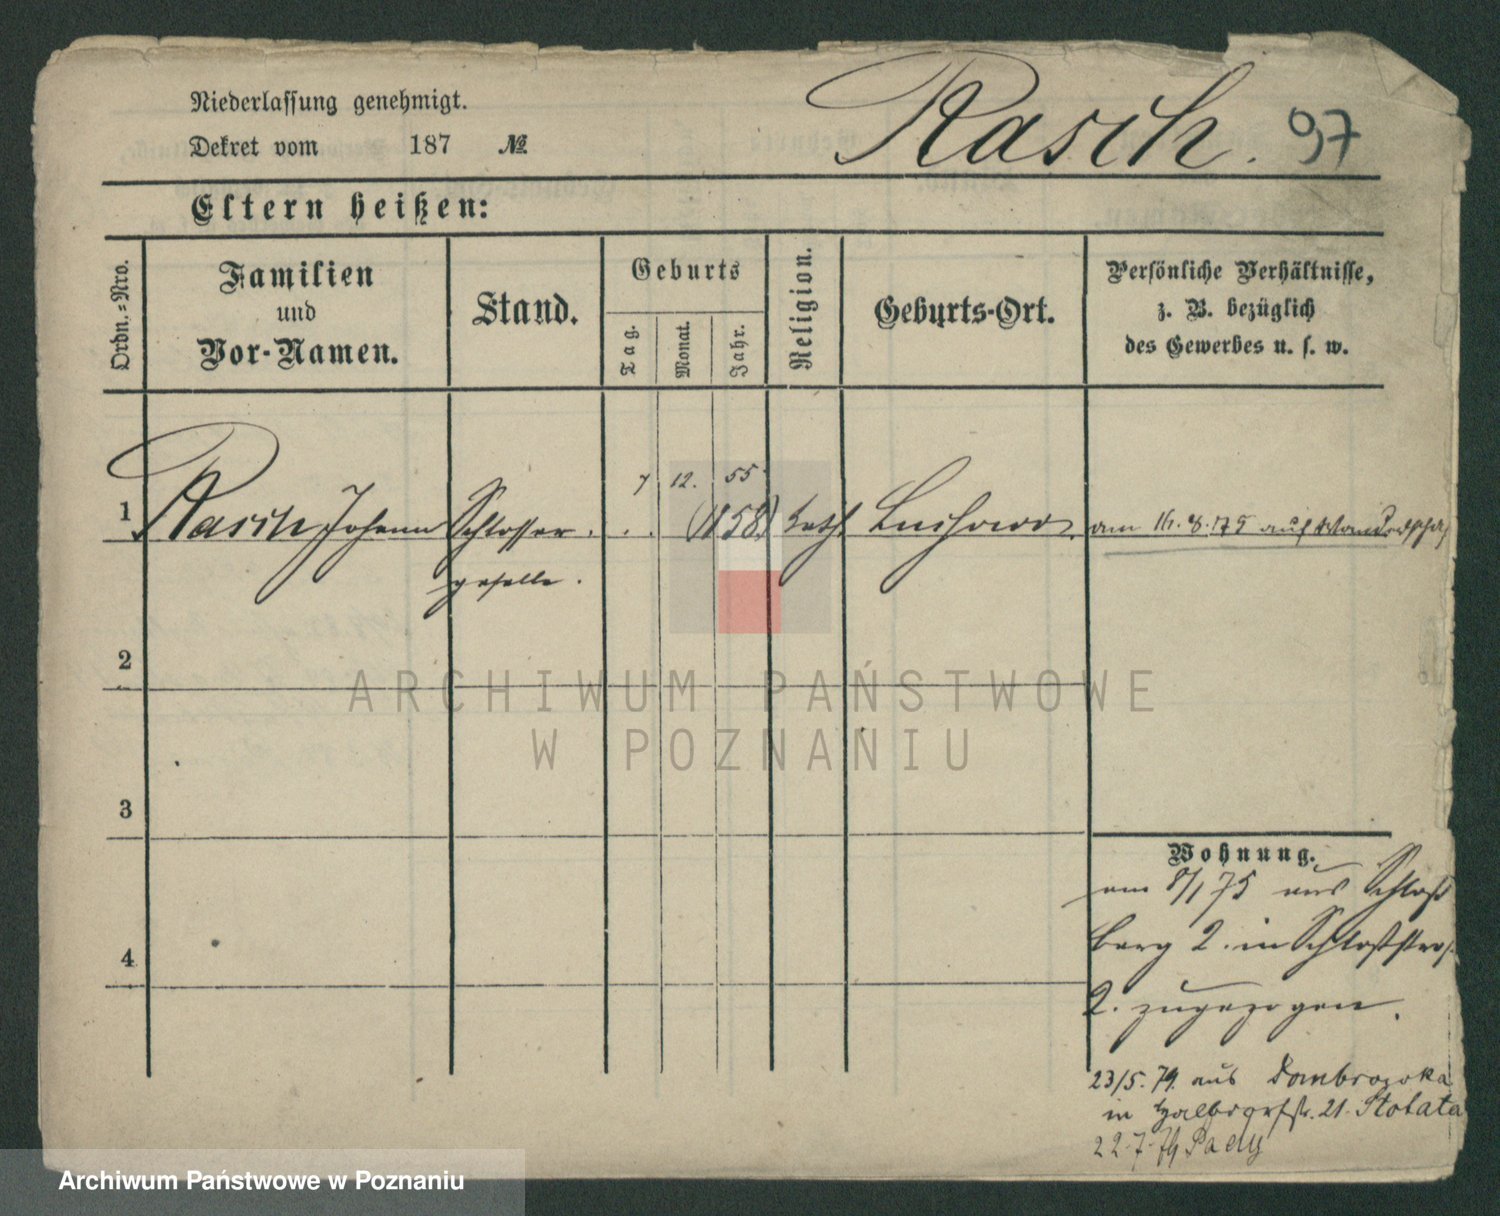 Niederlassung genehmigt.
Dekret vom 187 №
Rasch. 97
Eltern heißen:
Ordn.-Nro.
Familien
und
Vor-Namen.
Stand.
Geburts
Tag.
Monat.
Jahr.
Religion.
Geburts-Ort.
Persönliche Verhältnisse,
z. B. bezüglich
des Gewerbes u. s. w.
7 12. 55
1 Rasch Johann Schlosser (1858) kath. am 16.8.75 auf
geselle.
2
3
4
Wohnung.
am 8/1 75 aus Schloß
berg 2. in Schloßstraß.
2. zugezogen.
23/5. 79. aus Dombrowka
in 21. Stobata
22.7.79
ARCHIWUM PAŃSTWOWE
W POZNANIU
Archiwum Państwowe w Poznaniu